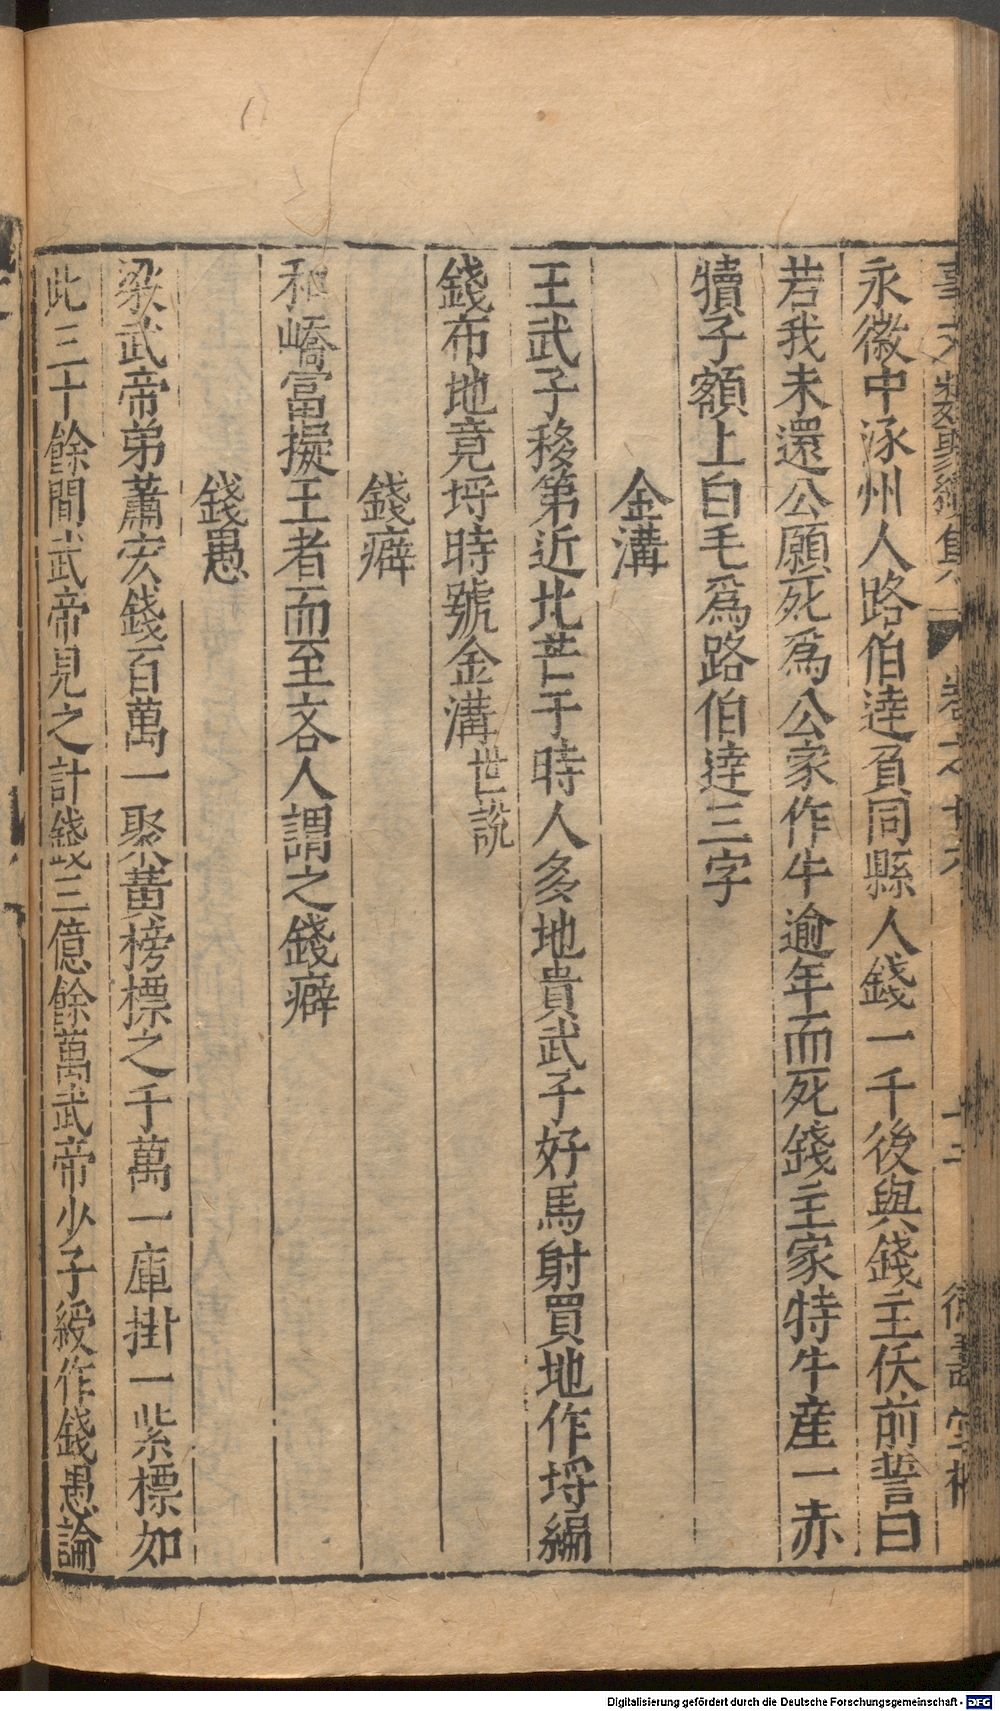 事文類聚續集 卷之廿六
永徽中涿州人路伯達負同縣人錢一千後與錢主佛前誓曰
若我未還公願死爲公家作牛逾年而死錢主家特牛産一赤
犢子額上白毛爲路伯達三字
金溝
王武子移第近北芒于時人多地貴武子好馬射買地作埒編
錢布地竟埒時號金溝世說
錢癖
和嶠富擬王者而至吝人謂之錢癖
錢愚
梁武帝弟蕭宏錢百萬一聚黃榜標之千萬一庫掛一紫標如
此三十餘間武帝見之計錢三億餘萬武帝少子綬作錢愚論
Digitalisierung gefördert durch die Deutsche Forschungsgemeinschaft - DFG